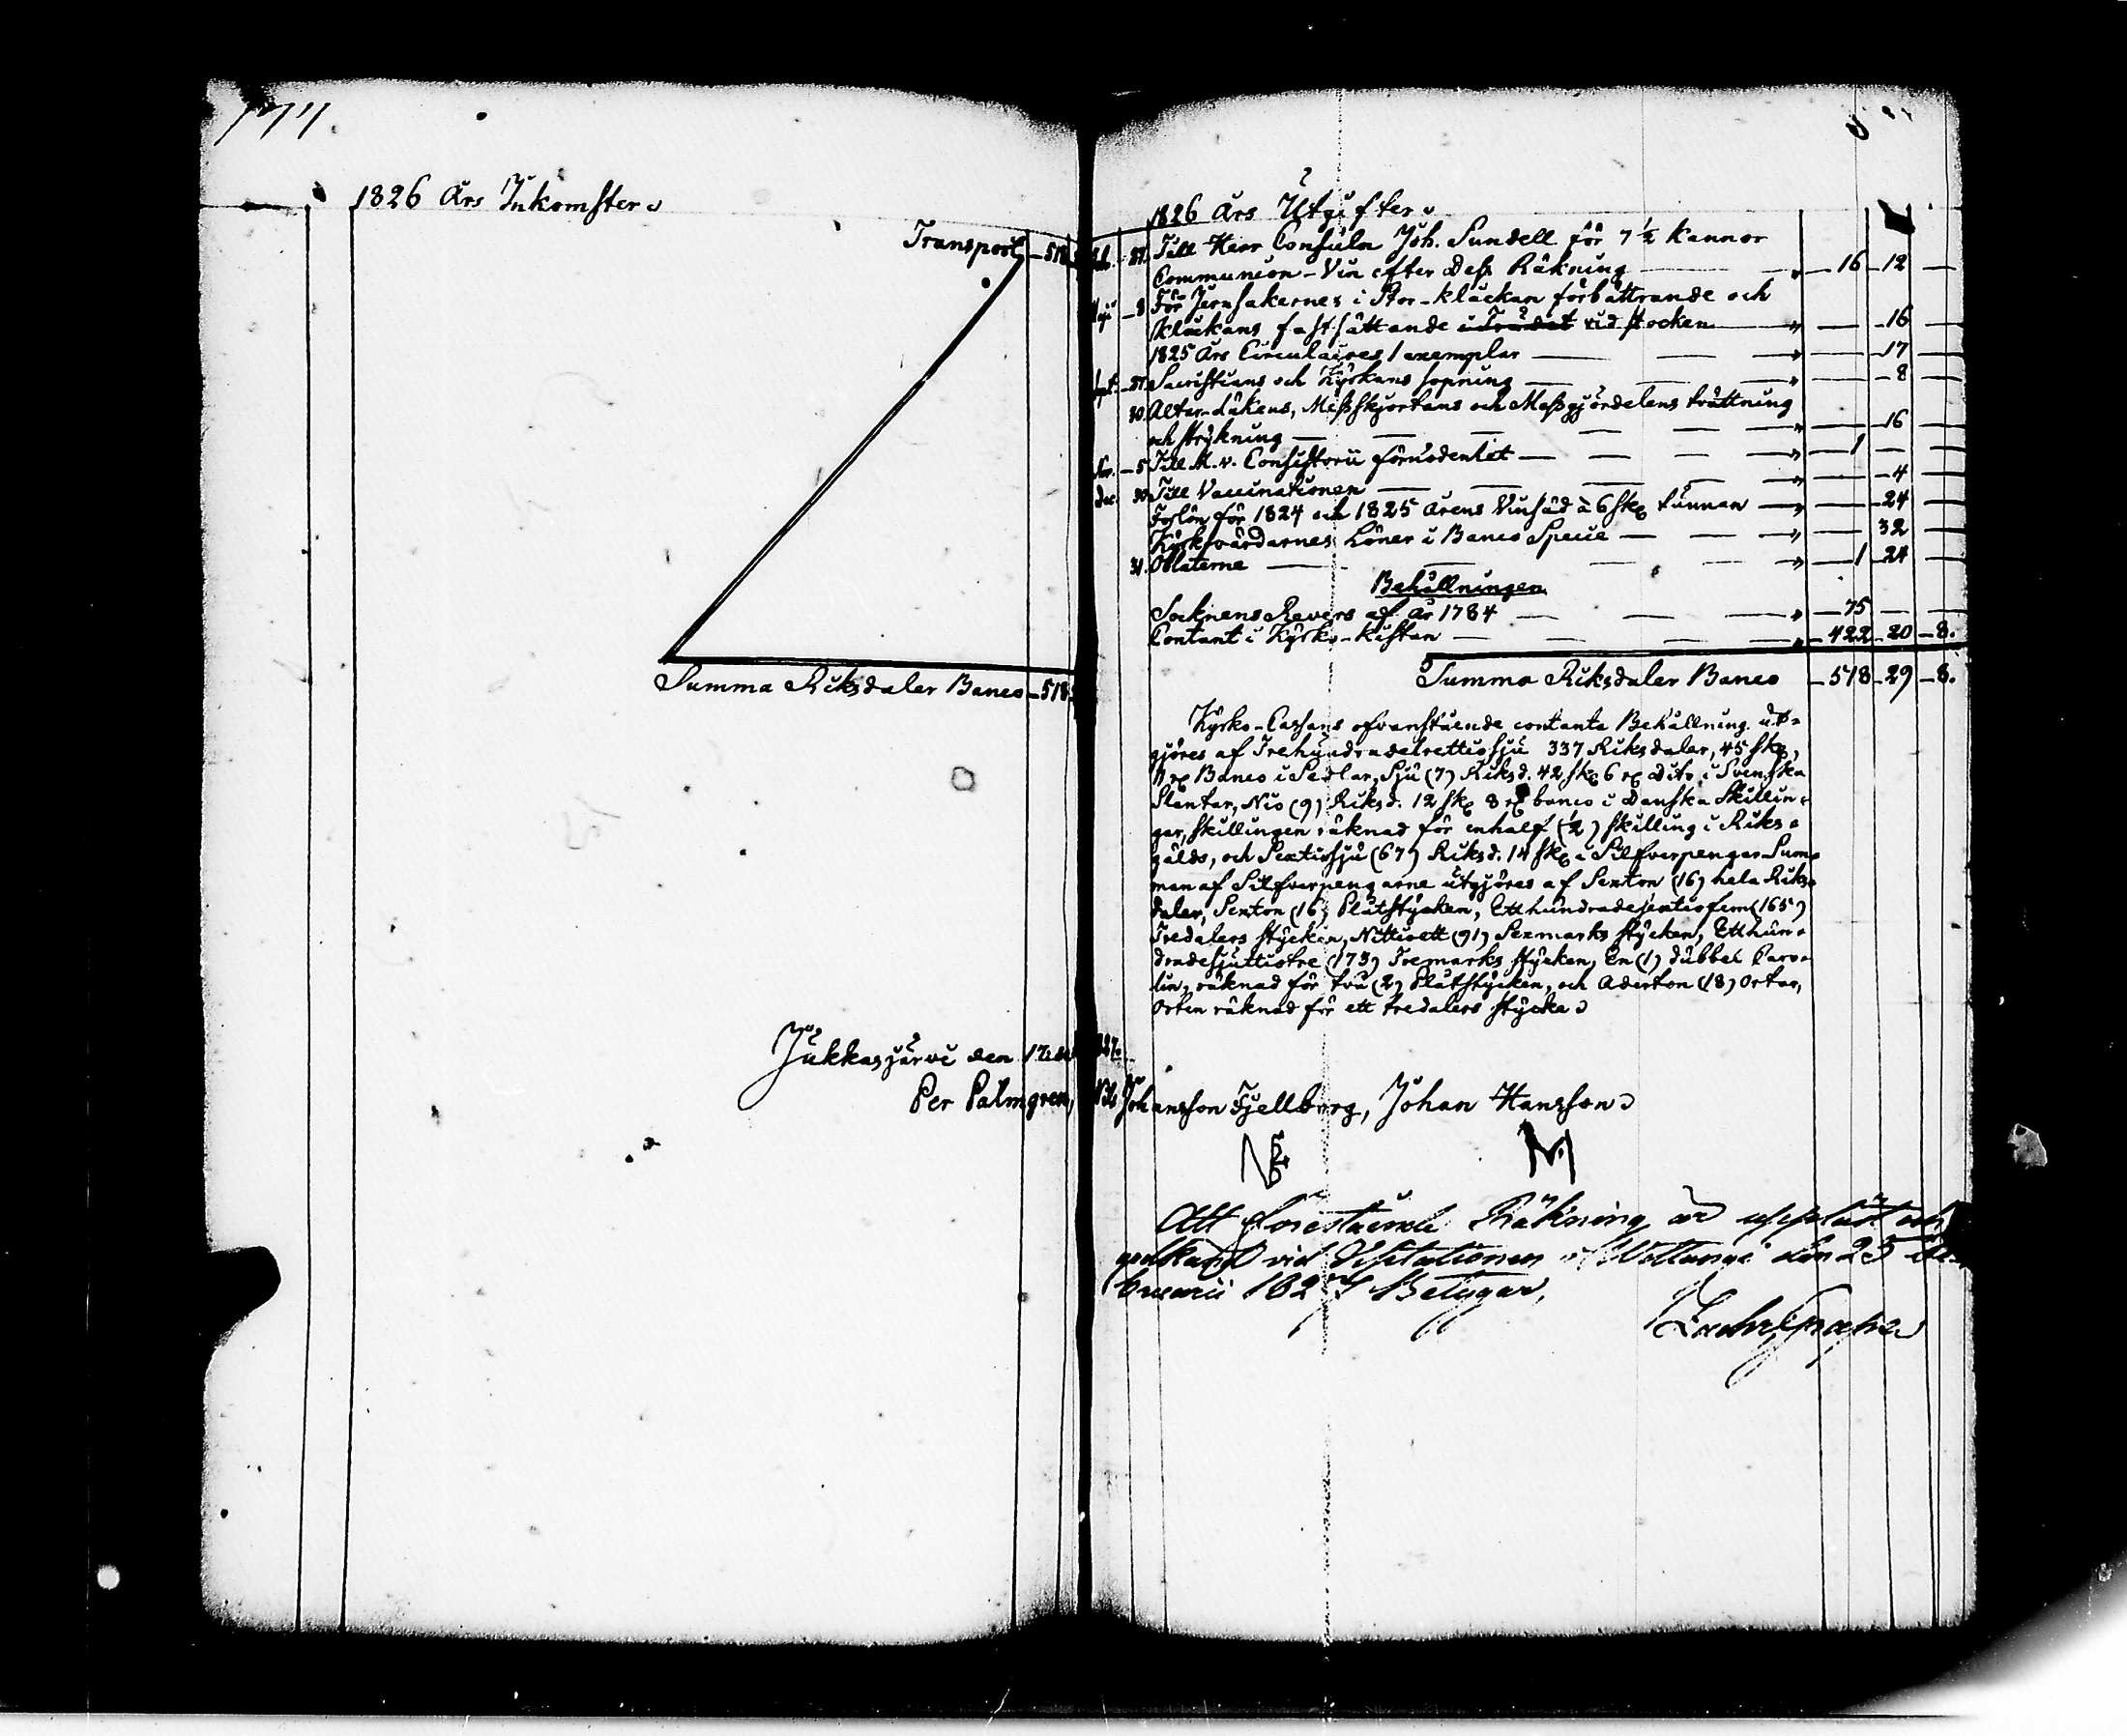 1826 Års Inkomster
Transport 518
Summa Riksdaler Banco 518
Jukkasjärvi den
Per Palmgren,
1826 Års Utgifter
Till Herr Consuln Joh. Sundell för 7 ½ kannor
Communion-Vin efter dess Räkning " 16 12
8 För Jernhakernes i Stor-klåckan förbättrande och
klåckans fastsättande i Trädet vid stocken " 16
1825 Års Circulaires 1 exemplar " 17
Sacristians och Kyrkans sopning " 8
30. Altar-dukens, Messskjortans och Messgjördelens tvättning
och strykning " 16
Nov. 5 Till M. v. Consistorii förnödenhet " 1
Dec. 30. Till Vaccinationen " 4
Forlön för 1824 och 1825 årens Vinsäd à 6 sk tunnan " 24
Kyrkvärdarnes Löner i Banco Specie " 32
31. Oblaterne " 1 24
Behållningen
Socknens Revers af År 1784 " 75
Contant i Kyrko-kistan " 422 20 8.
Summa Riksdaler Banco 518 29 8.
Kyrko-Cassans ofvanstående contanta Behållning ut-
gjöres af Trehundradetrettiosju 337 Riksdaler, 45 sk,
Banco i Sedlar, Sju (7) Riksd. 42 sk 6 r dito i Svenska
Slantar, Nio (9) Riksd. 12 sk 8 r banco i Danska Skillin-
gar, skillingen räknad för enhalf (½) skilling i Riks-
gälds, och Sextiosju (67) Riksd. 14 sk i Silfverpengar Sum-
man af Silfverpengarne utgjöres af Sexton (16) hela Riks-
daler, Sexton (16) Plåtstycken, Etthundradesextiofem (165)
Tredalers stycken, Nittioett (91) Sexmarks stycken, Etthun-
dradesjuttiotre (173) Tremarks stycken, En (1) dubbel Caro-
lin, räknad för två (2) Plåtstycken, och Aderton (18) Ortar,
Orten räknad för ett tredalers stycke
Nils Johansson Fjellborg, Johan Hansson
Att förestående Räkning är uppläst och
godkänd vid Visitationen i Vittangi den 25 Fe-
bruarii 1827 Betygar,
Zach Grape